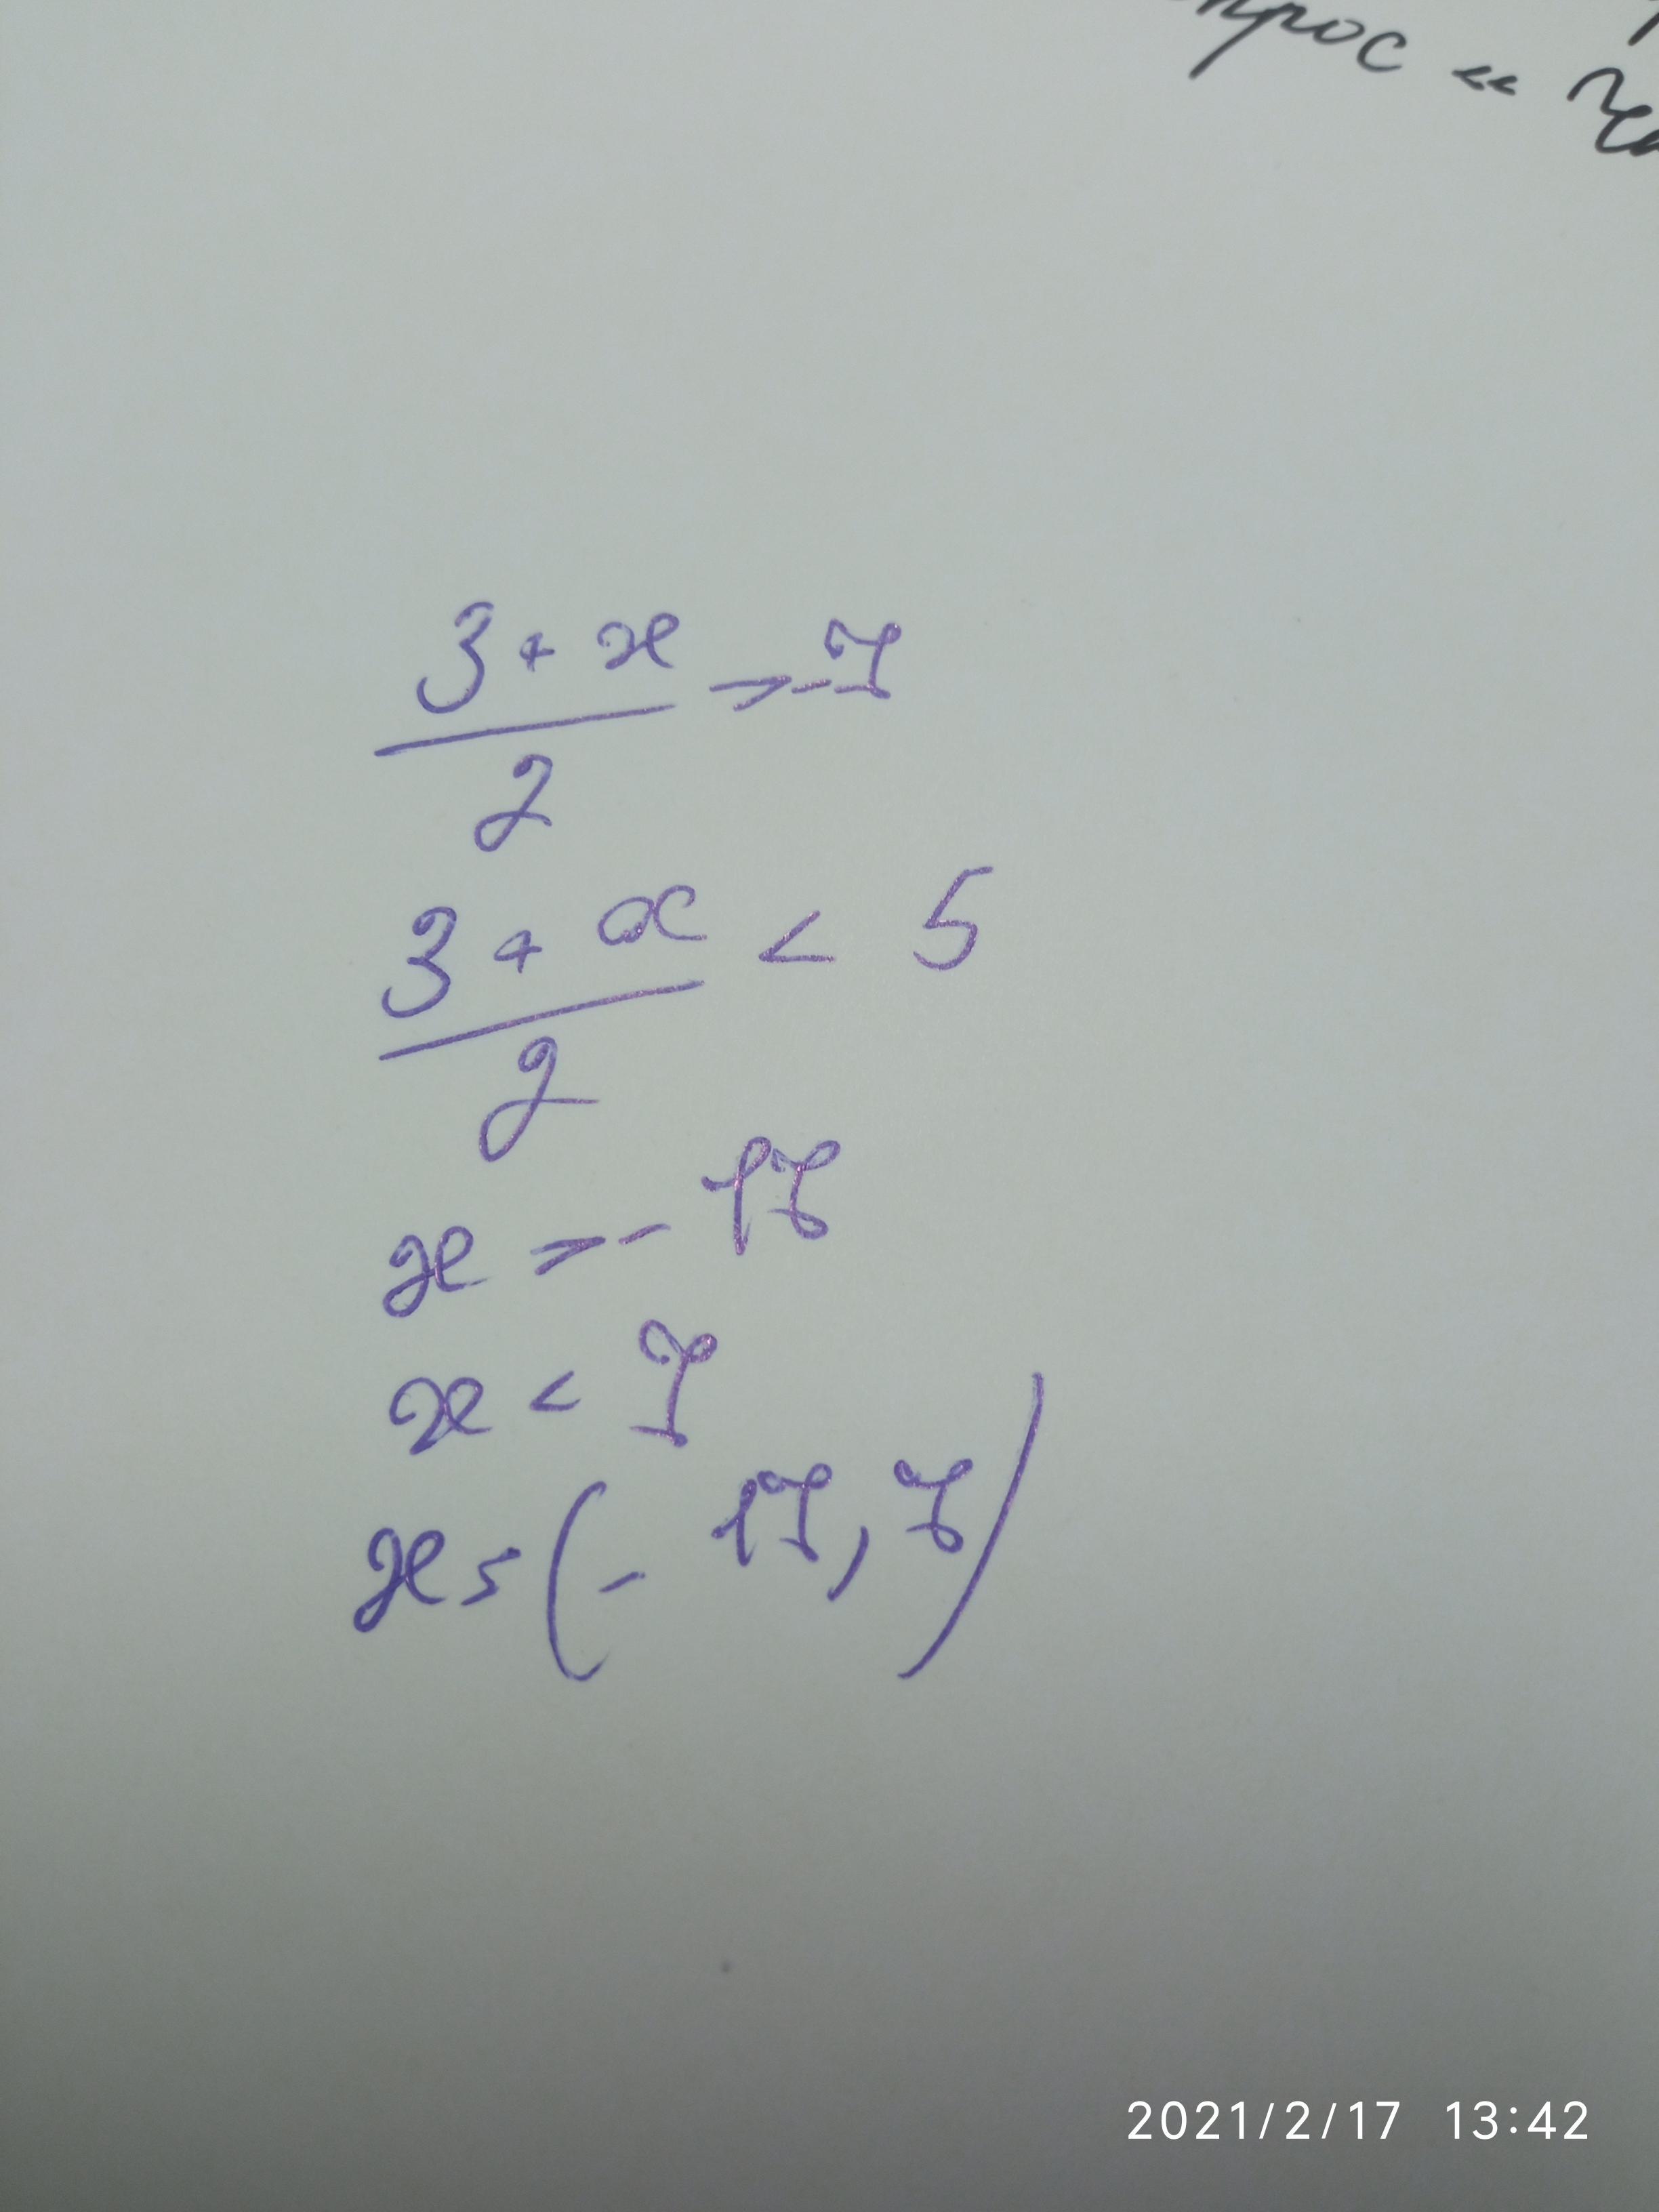 прос «
3 + x
2
> -7
3 + x
2
< 5
x > - 17
x < 7
x = (- 17, 7)
2021/2/17 13:42